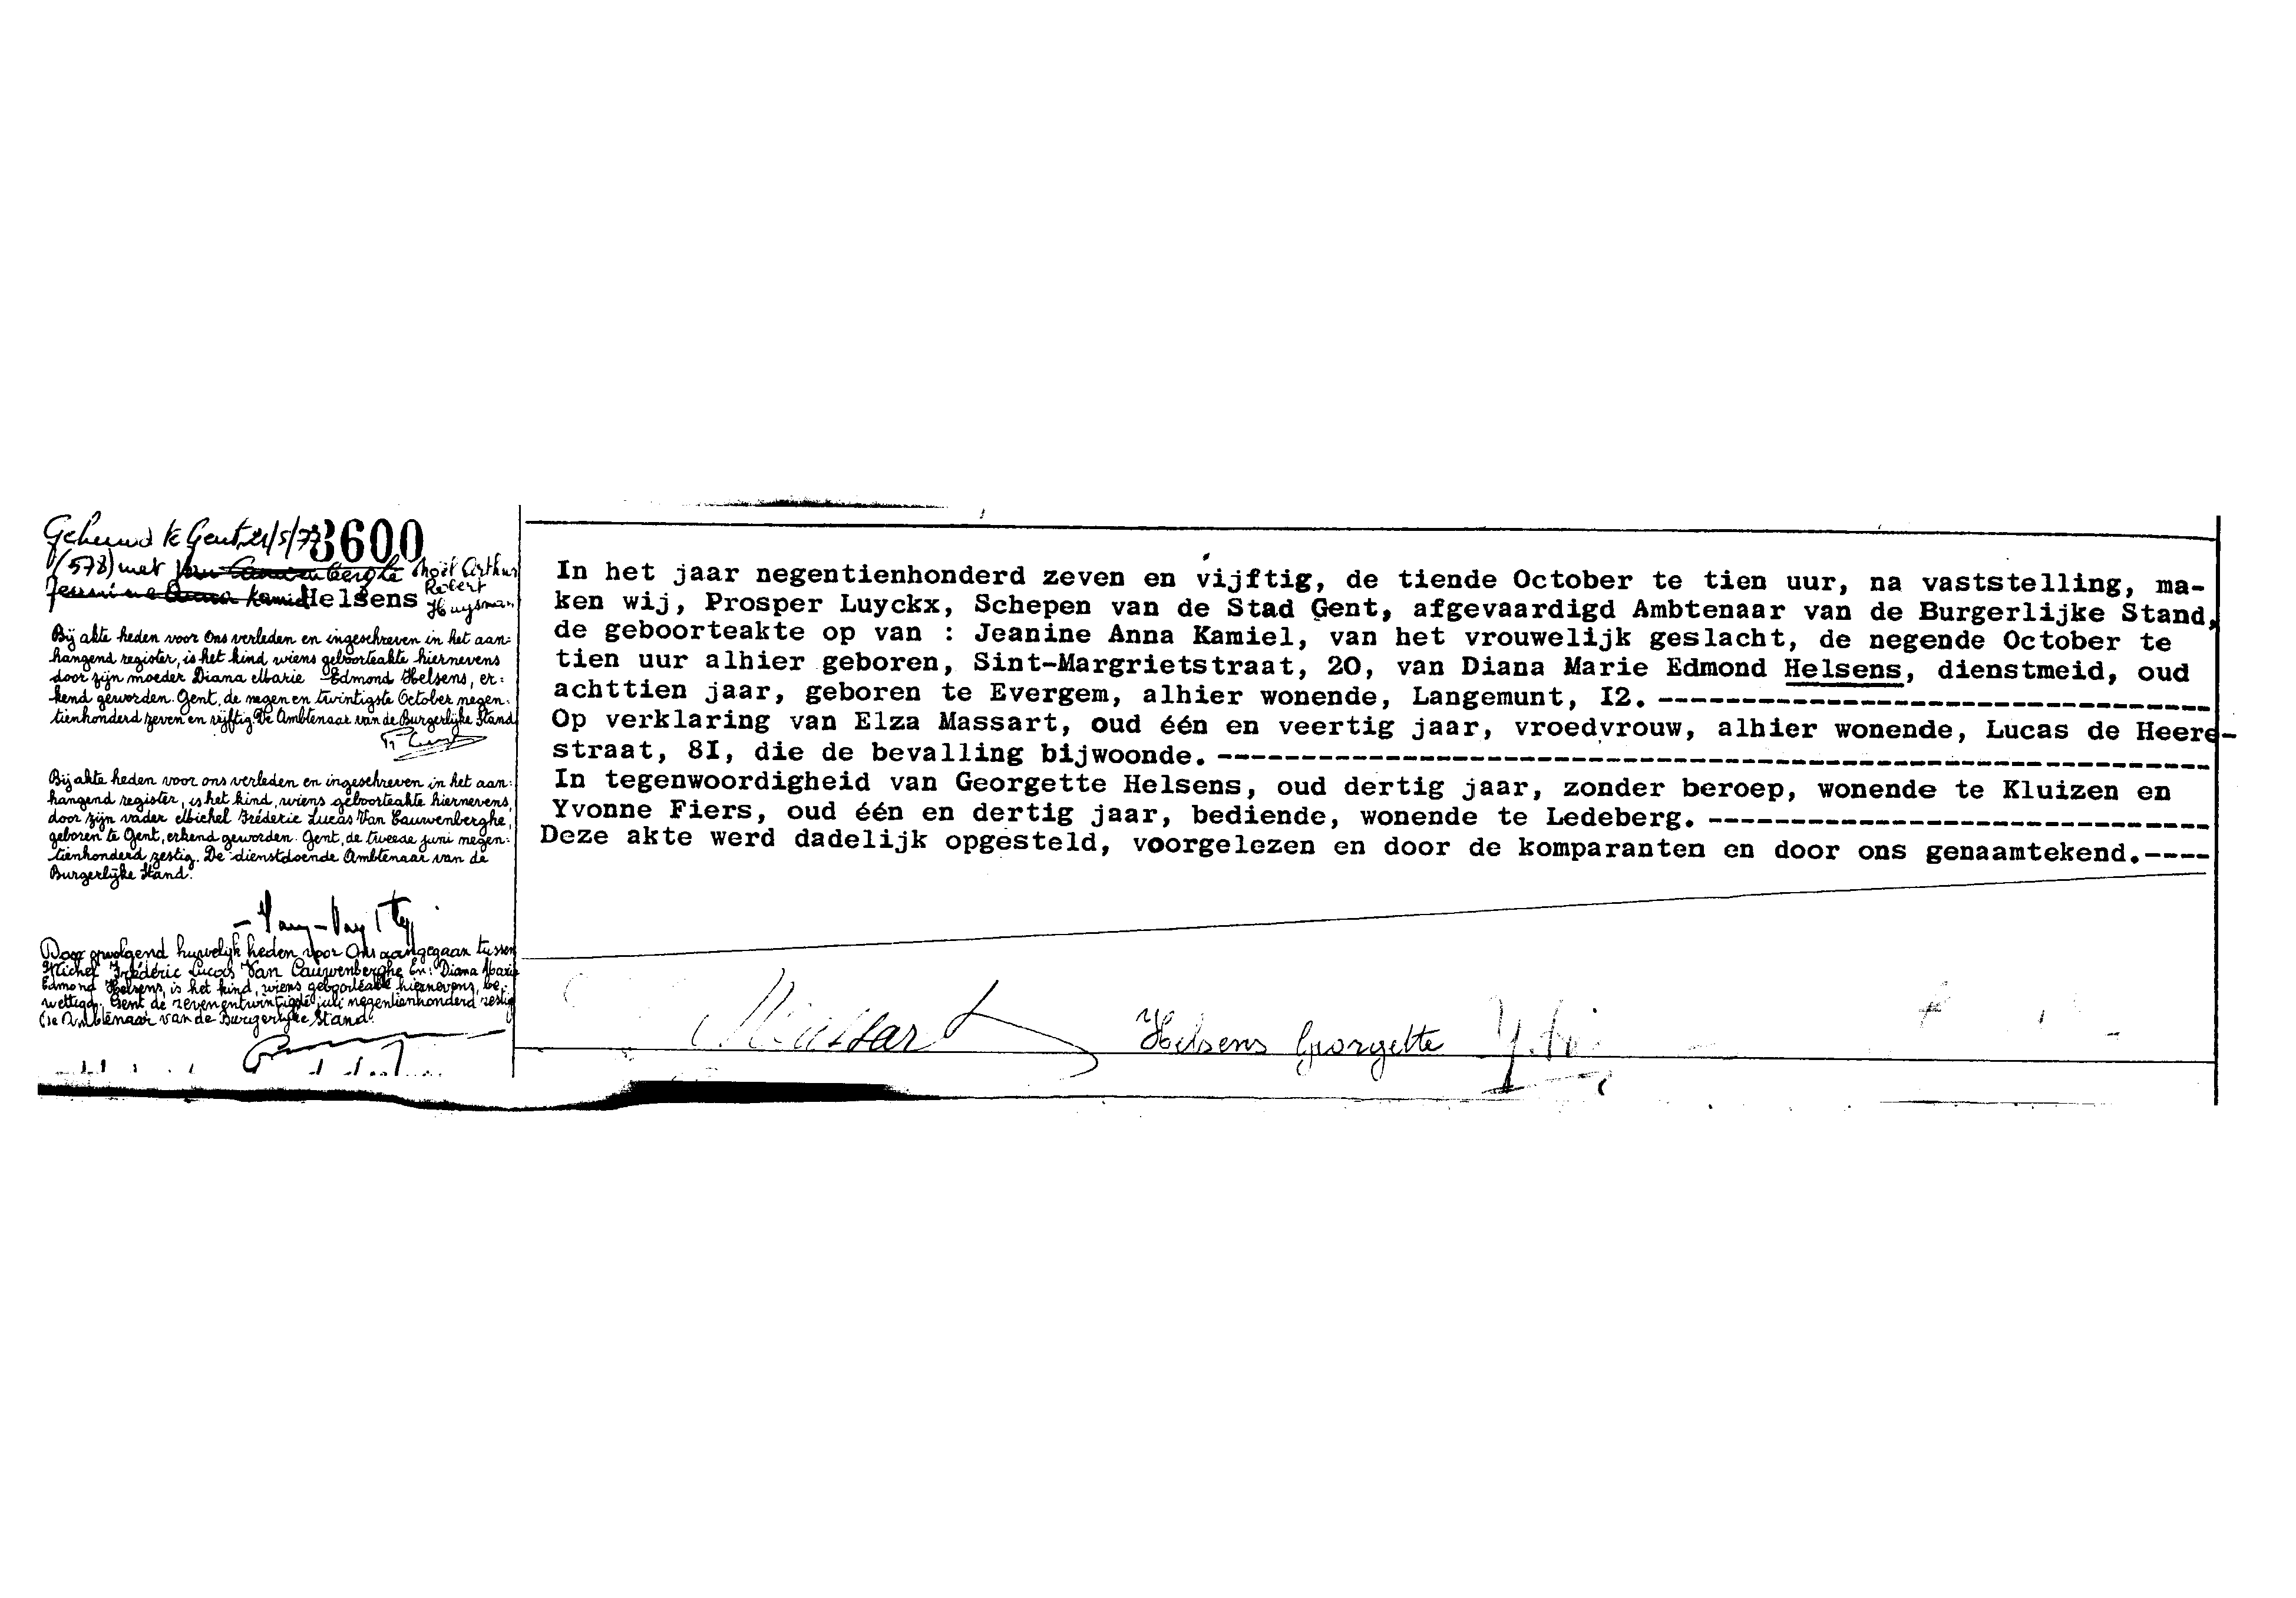 Gehuwd te Gent, 21/5/77 3600
(578) met Van Cauwenberghe Noël Arthur
Jeanine Anna Kamiel Helsens Robert
Huysman
Bij akte heden voor Ons verleden en ingeschreven in het aan-
hangend register, is het kind wiens geboorteakte hiernevens
door zijn moeder Diana Marie Edmond Helsens, er-
kend geworden. Gent, de negen en twintigste October negen-
tienhonderd zeven en vijftig. De Ambtenaar van de Burgerlijke Stand
Bij akte heden voor ons verleden en ingeschreven in het aan-
hangend register, is het kind, wiens geboorteakte hiernevens,
door zijn vader Michel Fréderic Lucas Van Cauwenberghe,
geboren te Gent, erkend geworden. Gent, de tweede juni negen-
tienhonderd zestig. De dienstdoende Ambtenaar van de
Burgerlijke Stand.
Door opvolgend huwelijk heden voor Ons aangegaan tussen
Michel Frédéric Lucas Van Cauwenberghe En: Diana Marie
Edmond Helsens, is het kind, wiens geboorteakte hiernevens, be-
wettigd. Gent de zevenentwintigste juli negentienhonderd zestig
De Ambtenaar van de Burgerlijke Stand.
In het jaar negentienhonderd zeven en vijftig, de tiende October te tien uur, na vaststelling, ma-
ken wij, Prosper Luyckx, Schepen van de Stad Gent, afgevaardigd Ambtenaar van de Burgerlijke Stand,
de geboorteakte op van : Jeanine Anna Kamiel, van het vrouwelijk geslacht, de negende October te
tien uur alhier geboren, Sint-Margrietstraat, 20, van Diana Marie Edmond Helsens, dienstmeid, oud
achttien jaar, geboren te Evergem, alhier wonende, Langemunt, I2. --------------------------------
Op verklaring van Elza Massart, oud één en veertig jaar, vroedvrouw, alhier wonende, Lucas de Heere-
straat, 8I, die de bevalling bijwoonde. ----------------------------------------------------------
In tegenwoordigheid van Georgette Helsens, oud dertig jaar, zonder beroep, wonende te Kluizen en
Yvonne Fiers, oud één en dertig jaar, bediende, wonende te Ledeberg. -----------------------------
Deze akte werd dadelijk opgesteld, voorgelezen en door de komparanten en door ons genaamtekend.----
Massart Helsens Georgette